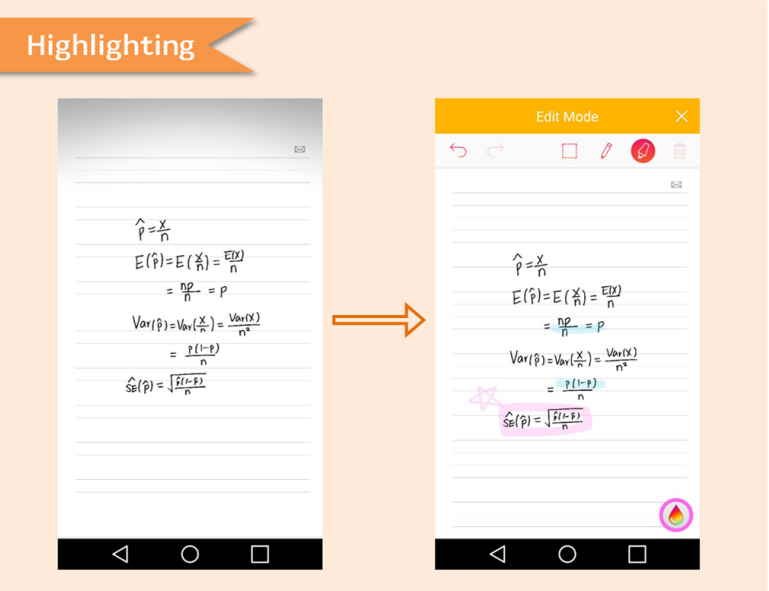 Highlighting
p̂ = X/n
E(p̂) = E(X/n) = E(X)/n
= np/n = p
Var(p̂) = Var(X/n) = Var(X)/n²
= p(1-p)/n
ŜE(p̂) = √(p̂(1-p̂)/n)
Edit Mode
p̂ = X/n
E(p̂) = E(X/n) = E(X)/n
= np/n = p
Var(p̂) = Var(X/n) = Var(X)/n²
= p(1-p)/n
ŜE(p̂) = √(p̂(1-p̂)/n)